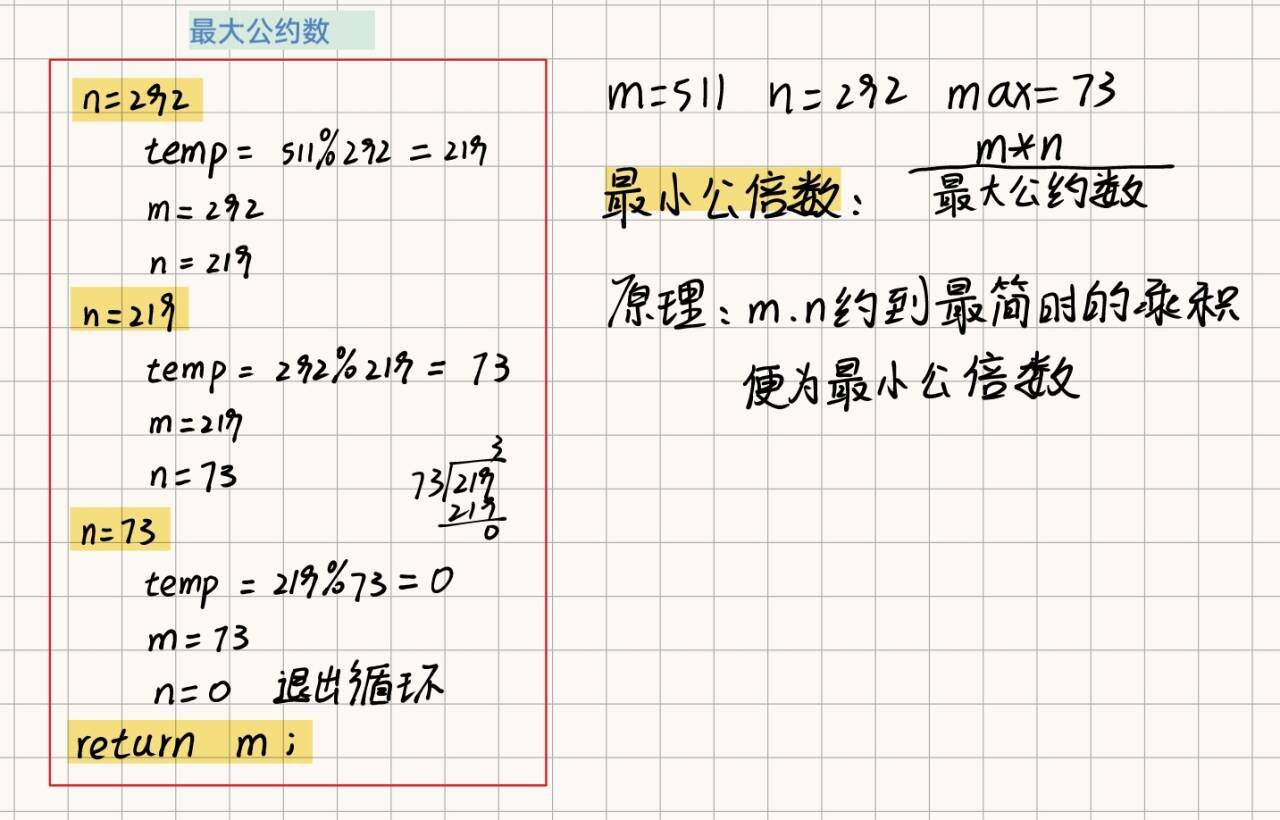 最大公约数
n=292
temp = 511%292 = 219
m=292
n=219
n=219
temp = 292%219 = 73
m=219
n=73
3
73/219
219
0
n=73
temp = 219%73=0
m=73
n=0 退出循环
return m;
m=511 n=292 max=73
m*n
最小公倍数: 最大公约数
原理:m.n约到最简时的乘积
便为最小公倍数